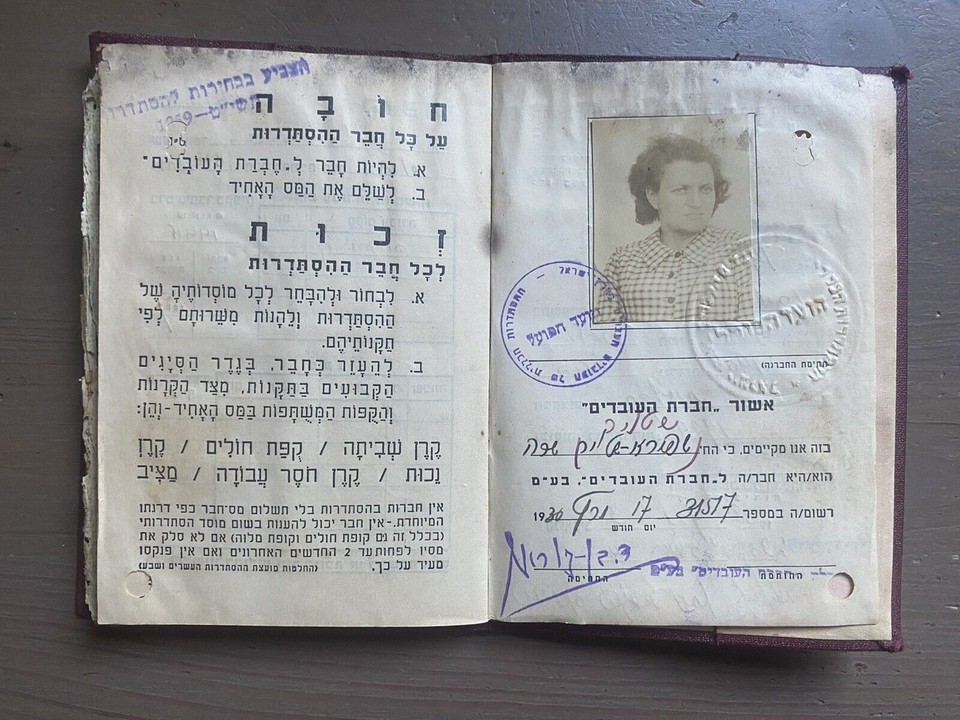 הצביע בבחירות להסתדרות
תשי"ט–1959
חוֹבָה
עַל כָּל חֲבֵר הַהִסְתַּדְּרוּת
א. לִהְיוֹת חָבֵר לְ„חֶבְרַת הָעוֹבְדִים"
ב. לְשַׁלֵּם אֶת הַמַּס הָאָחִיד
זְכוּת
לְכָל חֲבֵר הַהִסְתַּדְּרוּת
א. לִבְחוֹר וּלְהִבָּחֵר לְכָל מוֹסְדוֹתֶיהָ שֶׁל
הַהִסְתַּדְּרוּת וְלֵהָנוֹת מִשֵּׁרוּתָם לְפִי
תַּקָּנוֹתֵיהֶם.
ב. לְהֵעָזֵר כְּחָבֵר, בְּגֶדֶר הַסְּיָגִים
הַקְּבוּעִים בַּתַּקָּנוֹת, מִצַּד הַקְּרָנוֹת
וְהַקֻּפּוֹת הַמְשֻׁתָּפוֹת בַּמַּס הָאָחִיד-וְהֵן:
קֶרֶן שְׁבִיתָה / קֻפַּת חוֹלִים / קֶרֶן
נָכוּת / קֶרֶן חֹסֶר עֲבוֹדָה / מַצִּיב
אין חברות בהסתדרות בלי תשלום מס־חבר כפי דרגתו
המיוחדת.-אין חבר יכול להענות בשום מוסד הסתדרותי
(בכלל זה גם קופת חולים וקופת מלוה) אם לא סלק את
מסיו לפחות עד 2 החדשים האחרונים ואם אין פנקסו
מעיד על כך. (החלטות מועצת ההסתדרות העשרים ושבע)
הועד הפועל
חתימת החבר/ה)
אשור „חברת העובדים"
בזה אנו מקיימים, כי החי שרה
הוא/היא חבר/ה ל„חברת העובדים". בע"מ
רשום/ה במספר 31517 17 1930
יום חודש
ד. בן-גוריון
חברת העובדים" בע"מ
החתימה החותמת